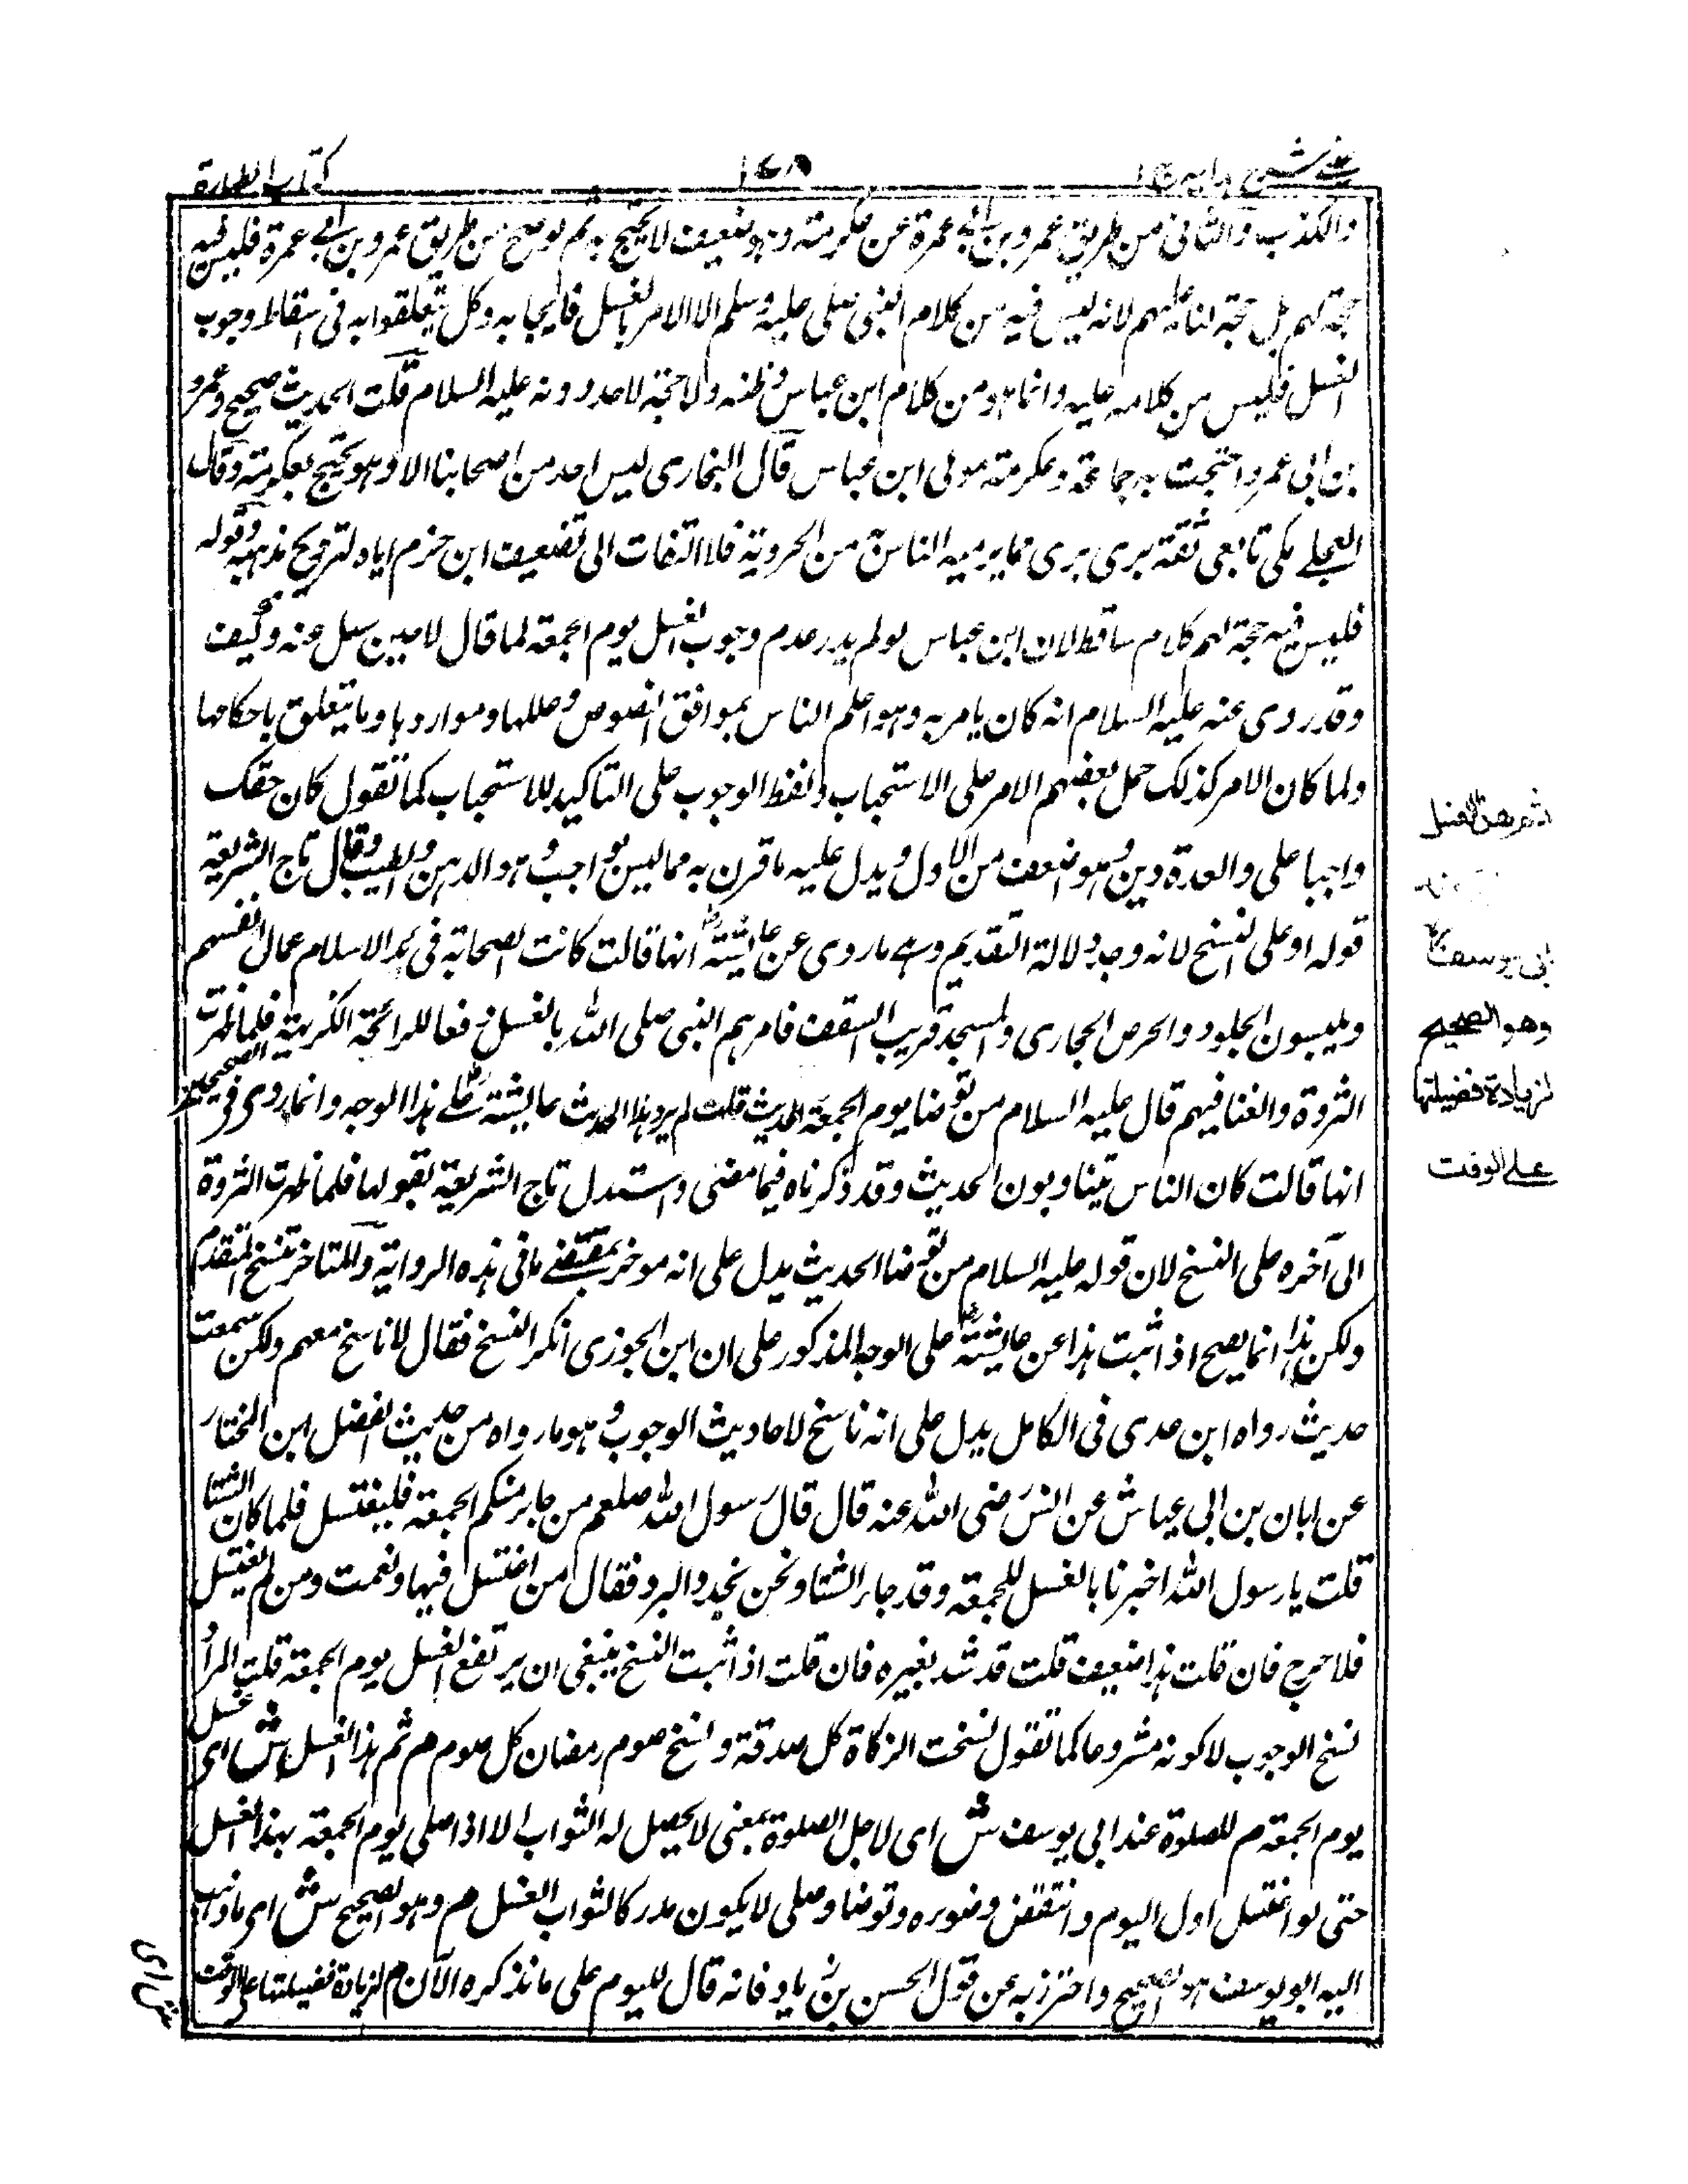 عینی شرح ہدایہ ج ۱
۱۴۸
کتاب الطہارة
والکذب والثانی من طریق عمرو بن ابی عمرة عن عکرمته وہو ضعیف لا یحتج به ثم لو صح من طریق عمرو بن ابی عمرة فلیس فیه
حجة لہم بل حجة لنا علیہم لانه لیس فیه من کلام النبی صلی علیه وسلم الا الامر بالغسل فایجابه وکل یتعلقوا به فی اسقاط وجوب
الغسل فلیس من کلامه علیه وانما ہو من کلام ابن عباس وظنه ولا حجة لاحد دونه علیه السلام قلت الحدیث صحیح وعمرو
بن ابی عمرو احتجت به جماعة وعکرمته مولی ابن عباس قال البخاری لیس احد من اصحابنا الا وہو یحتج بعکرمته وقال
العجلے مکی تابعی ثقته بری بری مما یرمیه الناس من الحروریة فلا التفات الی تضعیف ابن حزم ایاه لترویج مذہبه وقوله
فلیس فیه حجة لہم کلام ساقط لان ابن عباس لو لم یدر عدم وجوب الغسل یوم الجمعة لما قال لا حین سئل عنه وکیف
وقد روی عنه علیه السلام انه کان یامر به وہو اعلم الناس بمواقع النصوص وعللہا ومواردہا وما یتعلق باحکامہا
ولما کان الامر کذلک حمل بعضہم الامر علی الاستحباب ولفظ الوجوب علی التاکید للاستحباب کما تقول کان حقک
واجبا علی والعدة دین وہو اضعف من الاول ویدل علیه ما قرن به مما لیس بواجب وہو الدہن والطیب وقال تاج الشریعة
قوله او علی النسخ لانه وجد دلالة التقدیم وہے ما روی عن عایشة انہا قالت کانت الصحابة فی بدء الاسلام عمال انفسہم
ویلبسون الجلود والحرص الجاری والمسجد قریب السقف فامرہم النبی صلی الله بالغسل دفعا للرائحة الکریہة فلما ظہرت
الثروة والغنا فیہم قال علیه السلام من توضا یوم الجمعة الحدیث قلت لم یرد هذا الحدیث عایشة علے ہذا الوجه وانما روی فی الصحیحین
انہا قالت کان الناس یتناوبون الحدیث وقد ذکرناه فیما مضی واستدل تاج الشریعة بقولہا فلما ظہرت الثروة
الی آخره علی النسخ لان قوله علیه السلام من توضا الحدیث یدل علی انه موخر بمقتضے ما فی ہذه الروایة والمتاخر ینسخ المتقدم
ولکن ہذا انما یصح اذ اثبت ہذا عن عایشة علی الوجه المذکور علی ان ابن الجوزی انکر النسخ فقال لا ناسخ معہم ولکن سمعت
حدیث رواه ابن عدی فی الکامل یدل علی انه ناسخ لاحادیث الوجوب وہو ما رواه من حدیث الفضل ابن المختار
عن ابان بن ابی عیاش عن انس رضی الله عنه قال قال رسول الله صلعم من جاء منکم الجمعة فلیغتسل فلما کان الشتا
قلت یا رسول الله اخبرنا بالغسل للجمعة وقد جاء الشتا ونحن نجد البرد فقال من اغتسل فبہا ونعمت ومن لم یغتسل
فلا حرج فان قلت ہذا ضعیف قلت قد شد بغیره فان قلت اذ اثبت النسخ ینبغی ان یرتفع الغسل یوم الجمعة قلت المراد
نسخ الوجوب لا کونه مشروعا کما تقول نسخت الزکاة کل صدقة ونسخ صوم رمضان کل صوم م ثم ہذا الغسل ش ای غسل
یوم الجمعة م للصلوة عند ابی یوسف ش ای لاجل الصلوة بمعنی لا یحصل له الثواب الا اذا صلی یوم الجمعة بہذا الغسل
حتی لو اغتسل اول الیوم وانتقض وضوءه وتوضا وصلی لا یکون مدرکا لثواب الغسل م وہو الصحیح ش ای ما ذہب
الیه ابو یوسف ہو الصحیح واحترز به عن قول الحسن بن زیاد فانه قال للیوم علی ما نذکره الآن م لزیادة فضیلتہا علی الوقت
ش ای
ثم هذا الغسل
ابی یوسف
وهو الصحیح
لزیادة فضیلتها
علی الوقت